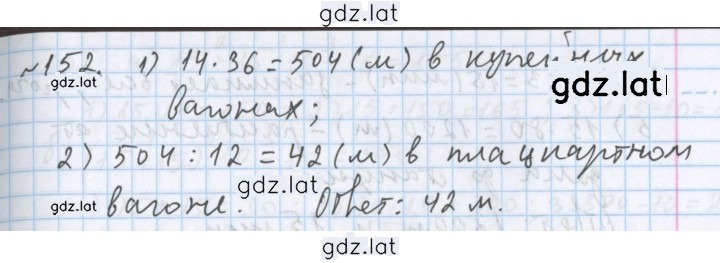 gdz.lat
№152. 1) 14·36=504(м) в купейных
gdz.lat
gdz.lat
вагонах;
2) 504:12=42(м) в плацкартном
gdz.lat
вагоне. Ответ: 42 м.
gdz.lat
gdz.lat